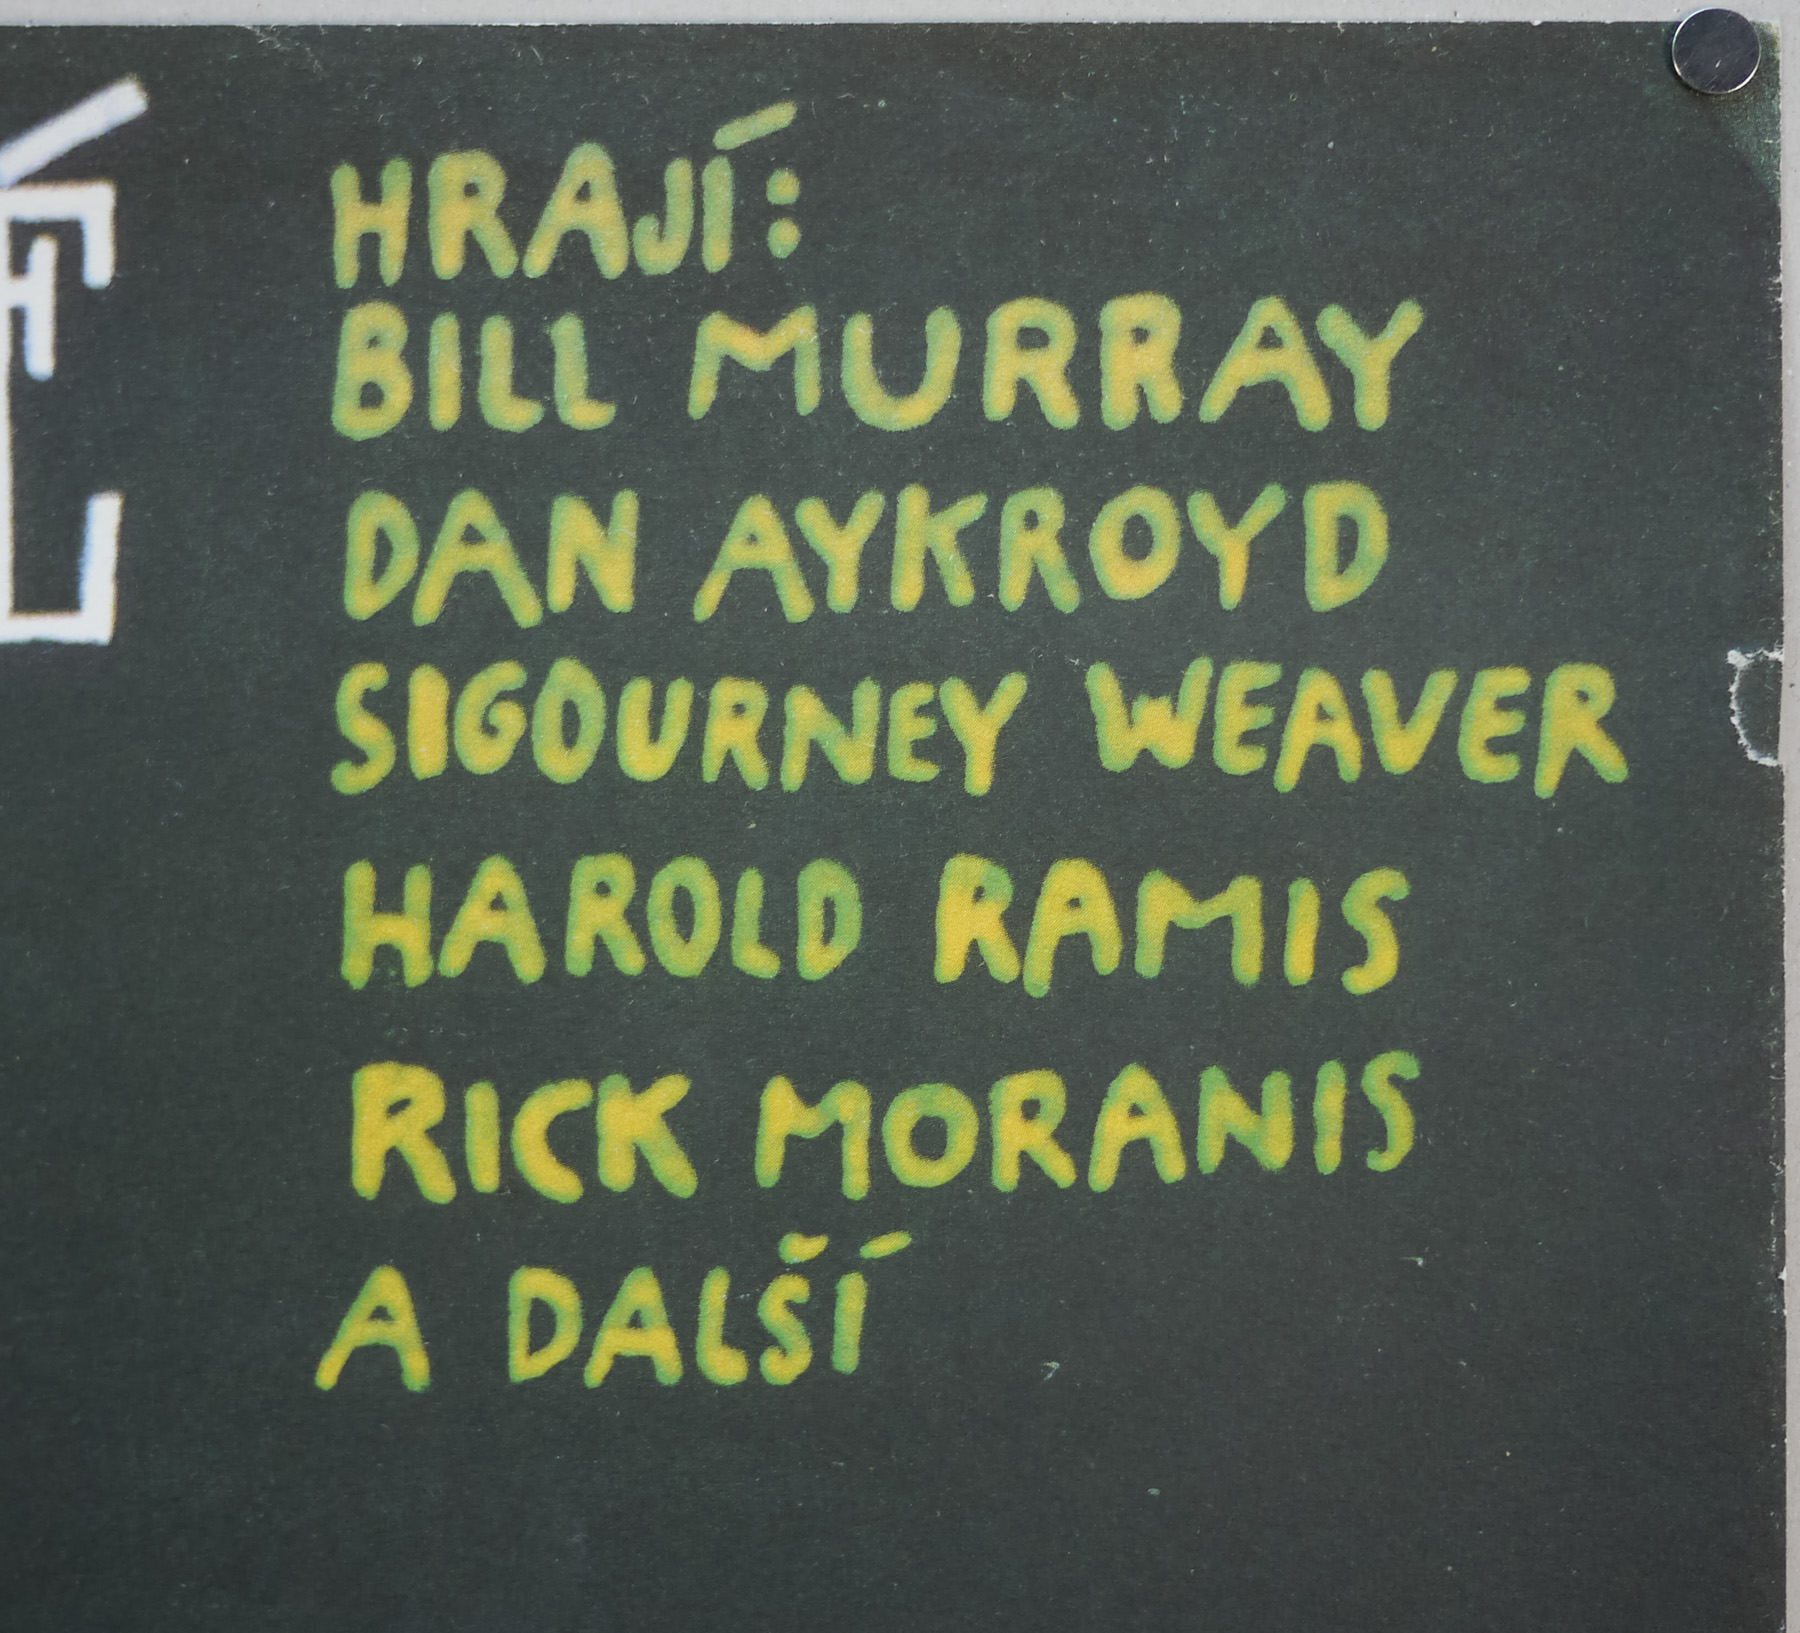 HRAJÍ:
BILL MURRAY
DAN AYKROYD
SIGOURNEY WEAVER
HAROLD RAMIS
RICK MORANIS
A DALŠÍ